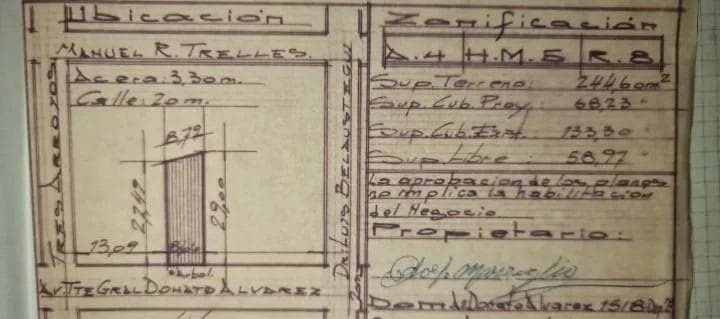 Ubicación
MANUEL R. TRELLES.
Acera: 3,30 m.
Calle: 20 m.
8,72
13,09
arbol.
TRES ARROYOS
DR. LUIS BELAUSTEGUI
AV. TTE GRAL DONATO ALVAREZ
Zonificación
A.4 H.M.5 R.8
Sup. Terreno: 244,60 m²
Sup. Cub. Proy. 68,23 "
Sup. Cub. Exist. 133,30 "
Sup. Libre: 58,97 "
La aprobacion de los planos
no implica la habilitacion
del Negocio
Propietario:
Dom. Av. Donato Alvarez 1518